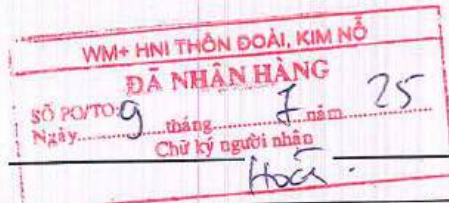 WM+ HNI THÔN ĐOÀI, KIM NỖ
ĐÃ NHẬN HÀNG
SỐ PO/TO:
Ngày 9 tháng 7 năm 25
Chữ ký người nhận
Hoà